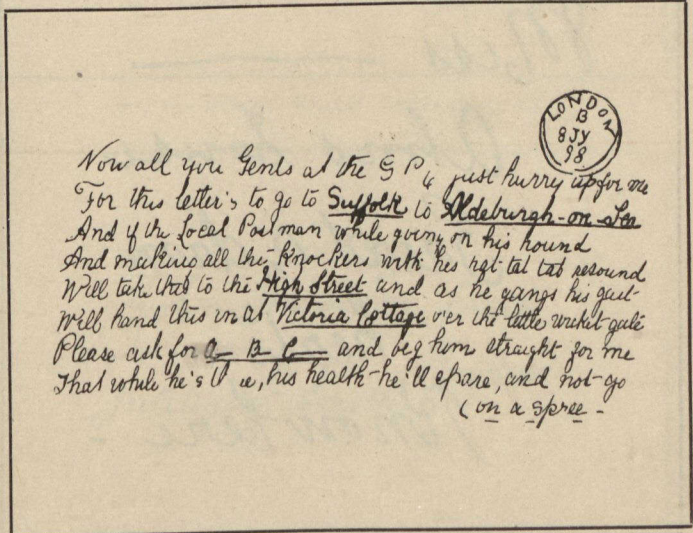 LONDON
B
8 JY
98
Now all you Gents at the G P just hurry up for me
For this letter's to go to Suffolk to Aldeburgh-on-Sea
And if the Local Postman while going on his round
And making all the knockers with his rat tat tat resound
Will take this to the High Street and as he gangs his gait
Will hand this in at Victoria Cottage o'er the little wicket gate
Please ask for A B C and beg him straight for me
That while he's he'll spare, and not go
(on a spree -